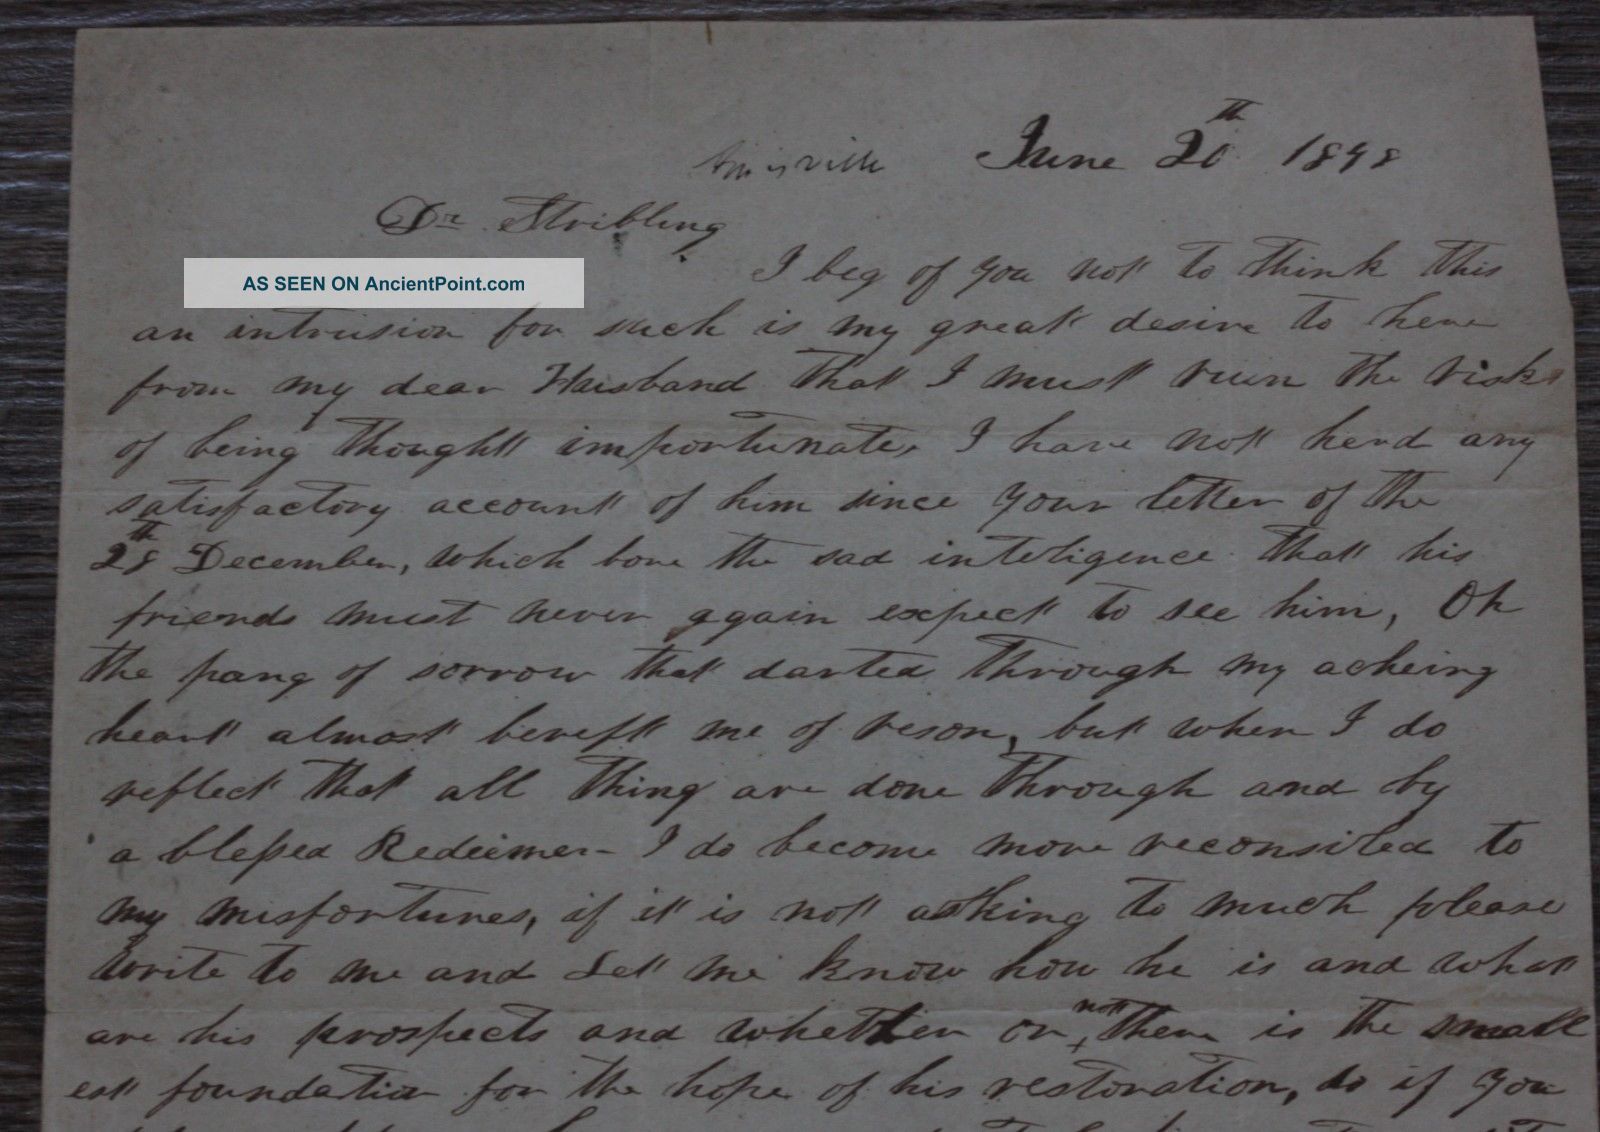 June 20th 1848
Dr Stribling
AS SEEN ON AncientPoint.com
I beg of you not to think this
an intrusion for such is my great desire to here
from my dear Husband that I must ruin the risk
of being thought importunate, I have not herd any
satisfactory account of him since your letter of the
28th December, which bore the sad inteligence that his
friends must never again expect to see him, Oh
the pang of sorrow that darted through my acheing
heart almost bereft me of reson, but when I do
reflect that all thing are done through and by
a blessed Redeemer - I do become more reconsiled to
my misfortunes, if it is not asking to much please
write to me and Let me know how he is and what
are his prospects and whether or not there is the small
est foundation for the hope of his restoration, do if you